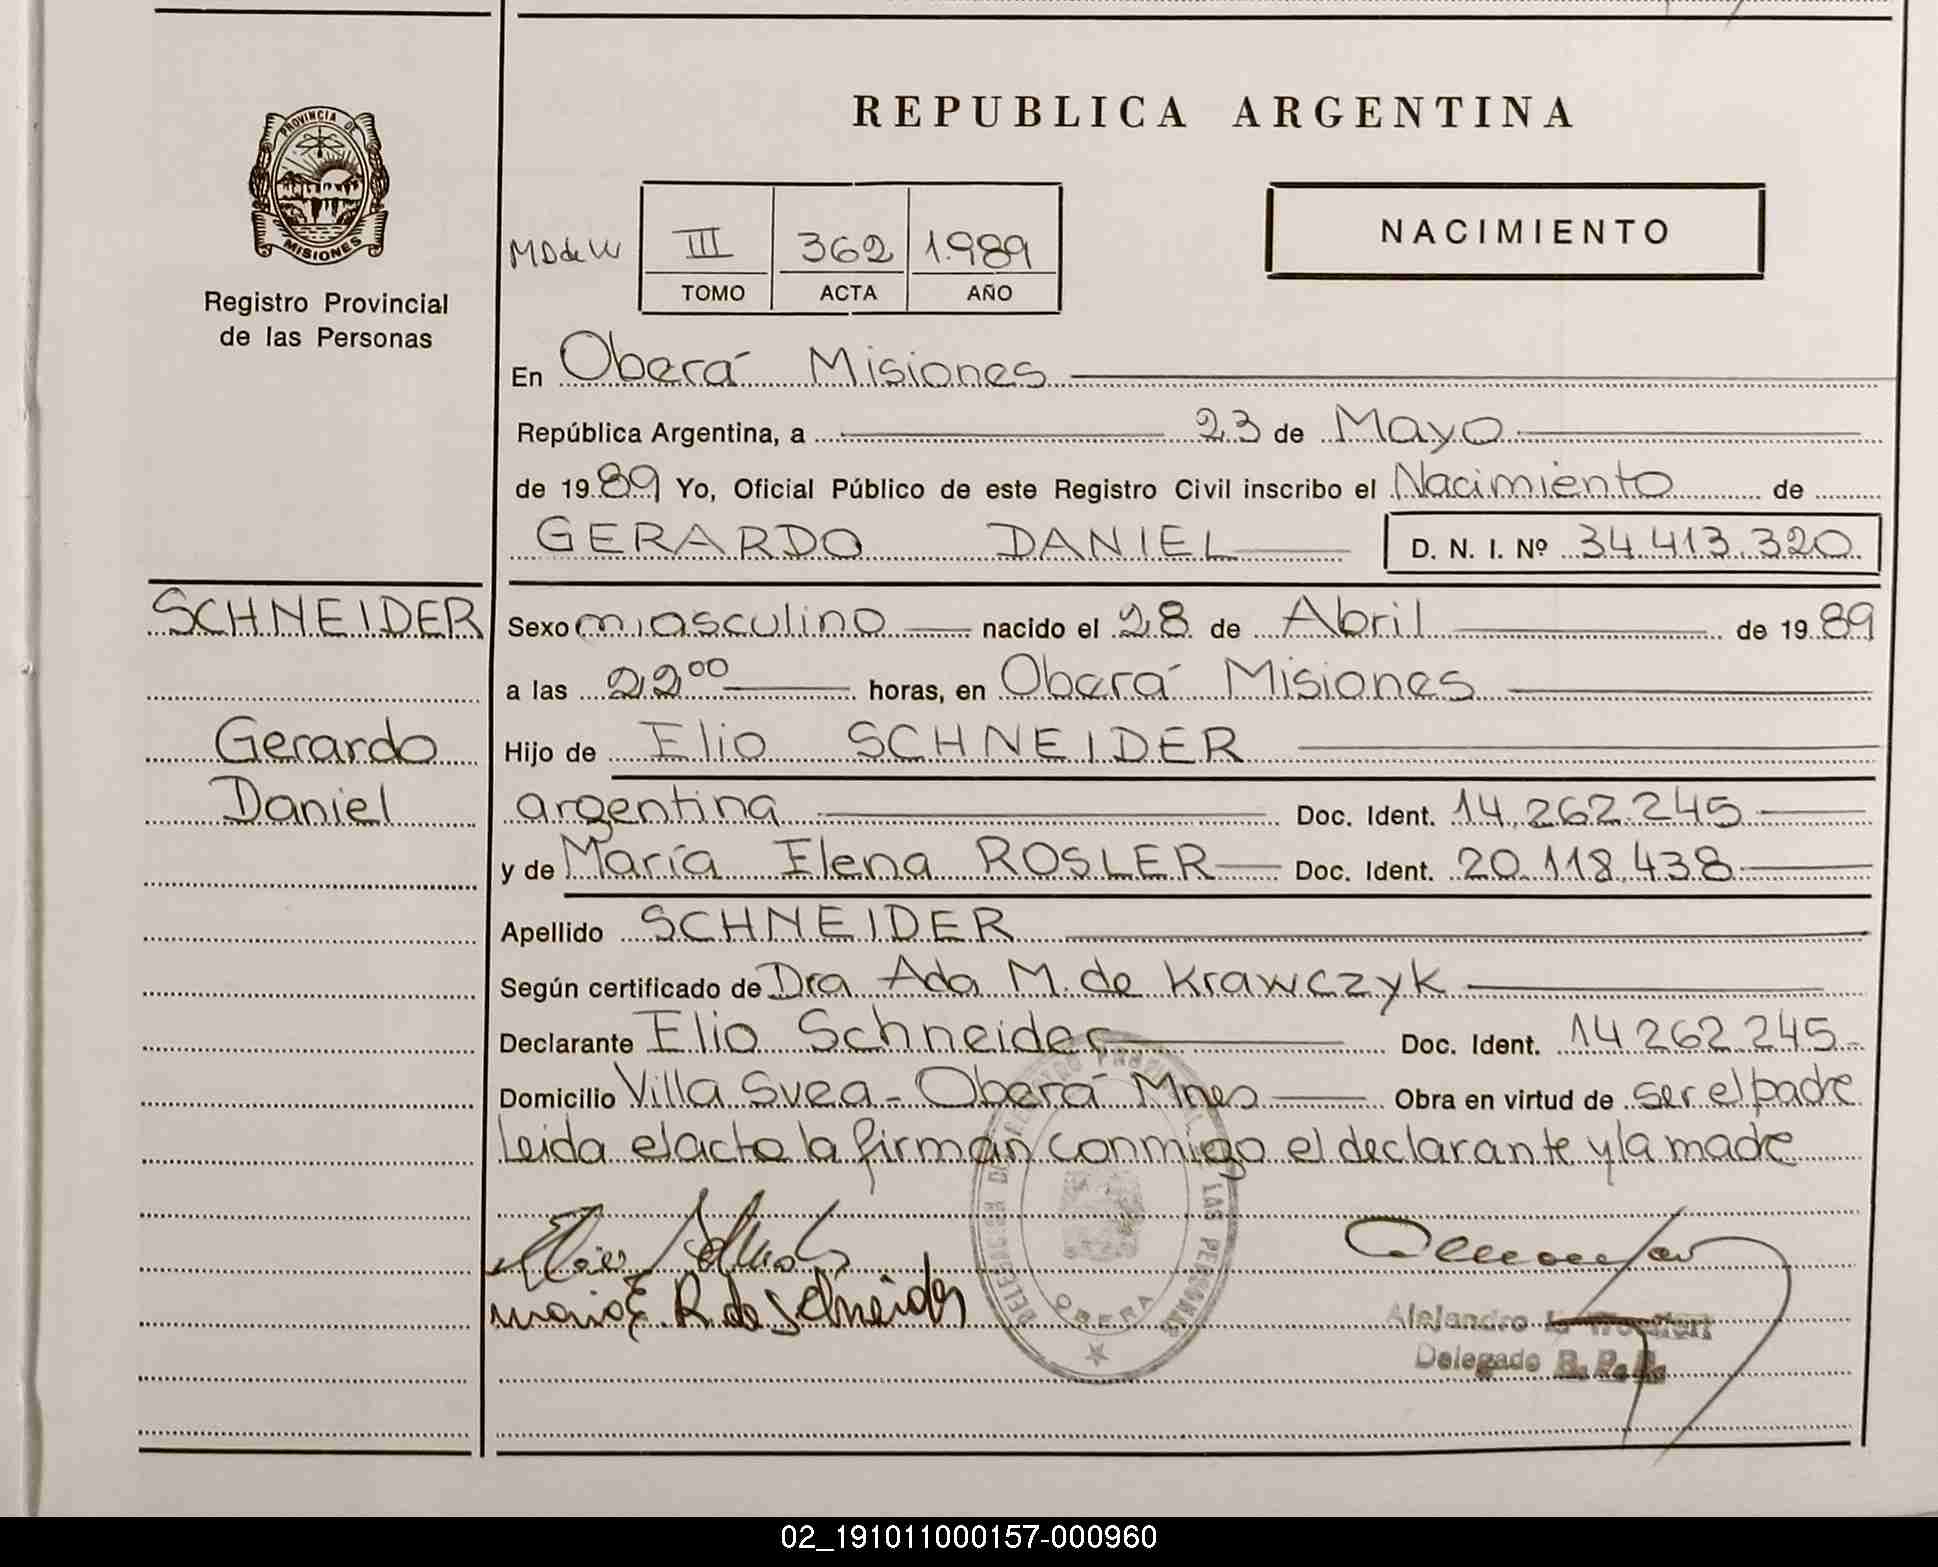 REPUBLICA ARGENTINA
PROVINCIA DE
MISIONES
Registro Provincial
de las Personas
MDdeW
III 362 1.989
TOMO ACTA AÑO
NACIMIENTO
En Oberá Misiones
República Argentina, a 23 de Mayo
de 1989 Yo, Oficial Público de este Registro Civil inscribo el Nacimiento de
GERARDO DANIEL D. N. I. Nº 34.413.320
SCHNEIDER
Gerardo
Daniel
Sexo masculino nacido el 28 de Abril de 1989
a las 22⁰⁰ horas, en Oberá Misiones
Hijo de Elio SCHNEIDER
argentina Doc. Ident. 14.262.245
y de María Elena ROSLER Doc. Ident. 20.118.438
Apellido SCHNEIDER
Según certificado de Dra Ada M. de Krawczyk
Declarante Elio Schneider Doc. Ident. 14 262 245
Domicilio Villa Svea - Oberá Mnes Obra en virtud de ser el padre
Leida el acto la firman conmigo el declarante y la madre
Maria E. R. de Schneider
DELEGACION DE LAS PERSONAS
OBERA
Alejandro
Delegado R. P. P.
02_191011000157-000960